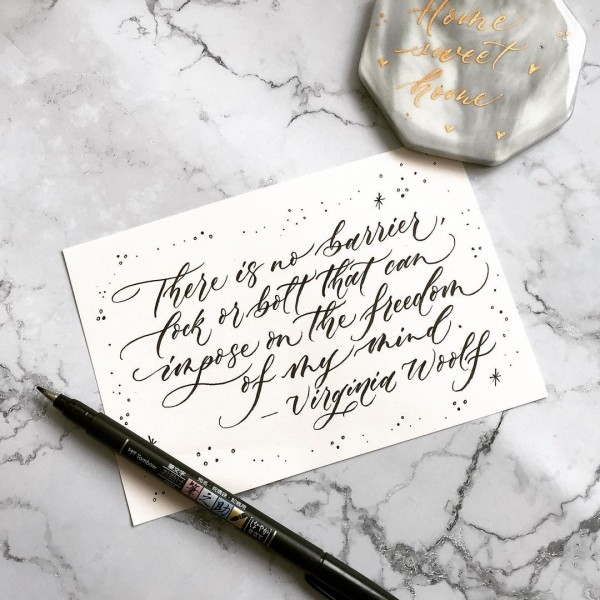 Home
sweet
home
There is no barrier,
lock or bolt that can
impose on the freedom
of my mind.
- Virginia Woolf
Tombow
筆之助